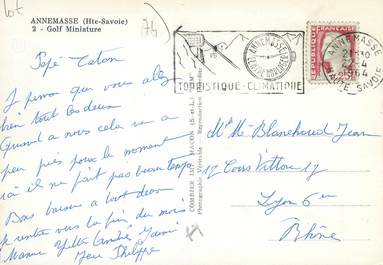 lot
74
ANNEMASSE (Hte-Savoie)
2 - Golf Miniature
Pépé - Taton
Je pense que vous allez
bien tout les deux
Quand a nous cela va a
peu près pour le moment
ici il ne fait pas beau temps
Bons baisers a tout deux
je rentre vers la fin du mois
Mamie Yvette
Jean Philippe
COMBIER IMP. MACON (S.-et-L.)
Photographie Véritable - Reproduction
ANNEMASSE
TOURISTIQUE-CLIMATIQUE
ANNEMASSE
HAUTE SAVOIE
REPUBLIQUE FRANÇAISE
0,25
Mr Mme Blanchard Jean
12 Cours Vitton 17
Lyon 6e
Rhône